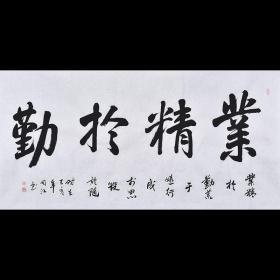 業精於勤
業精
於
勤荒
于
嬉行
成
於思
毀
於隨